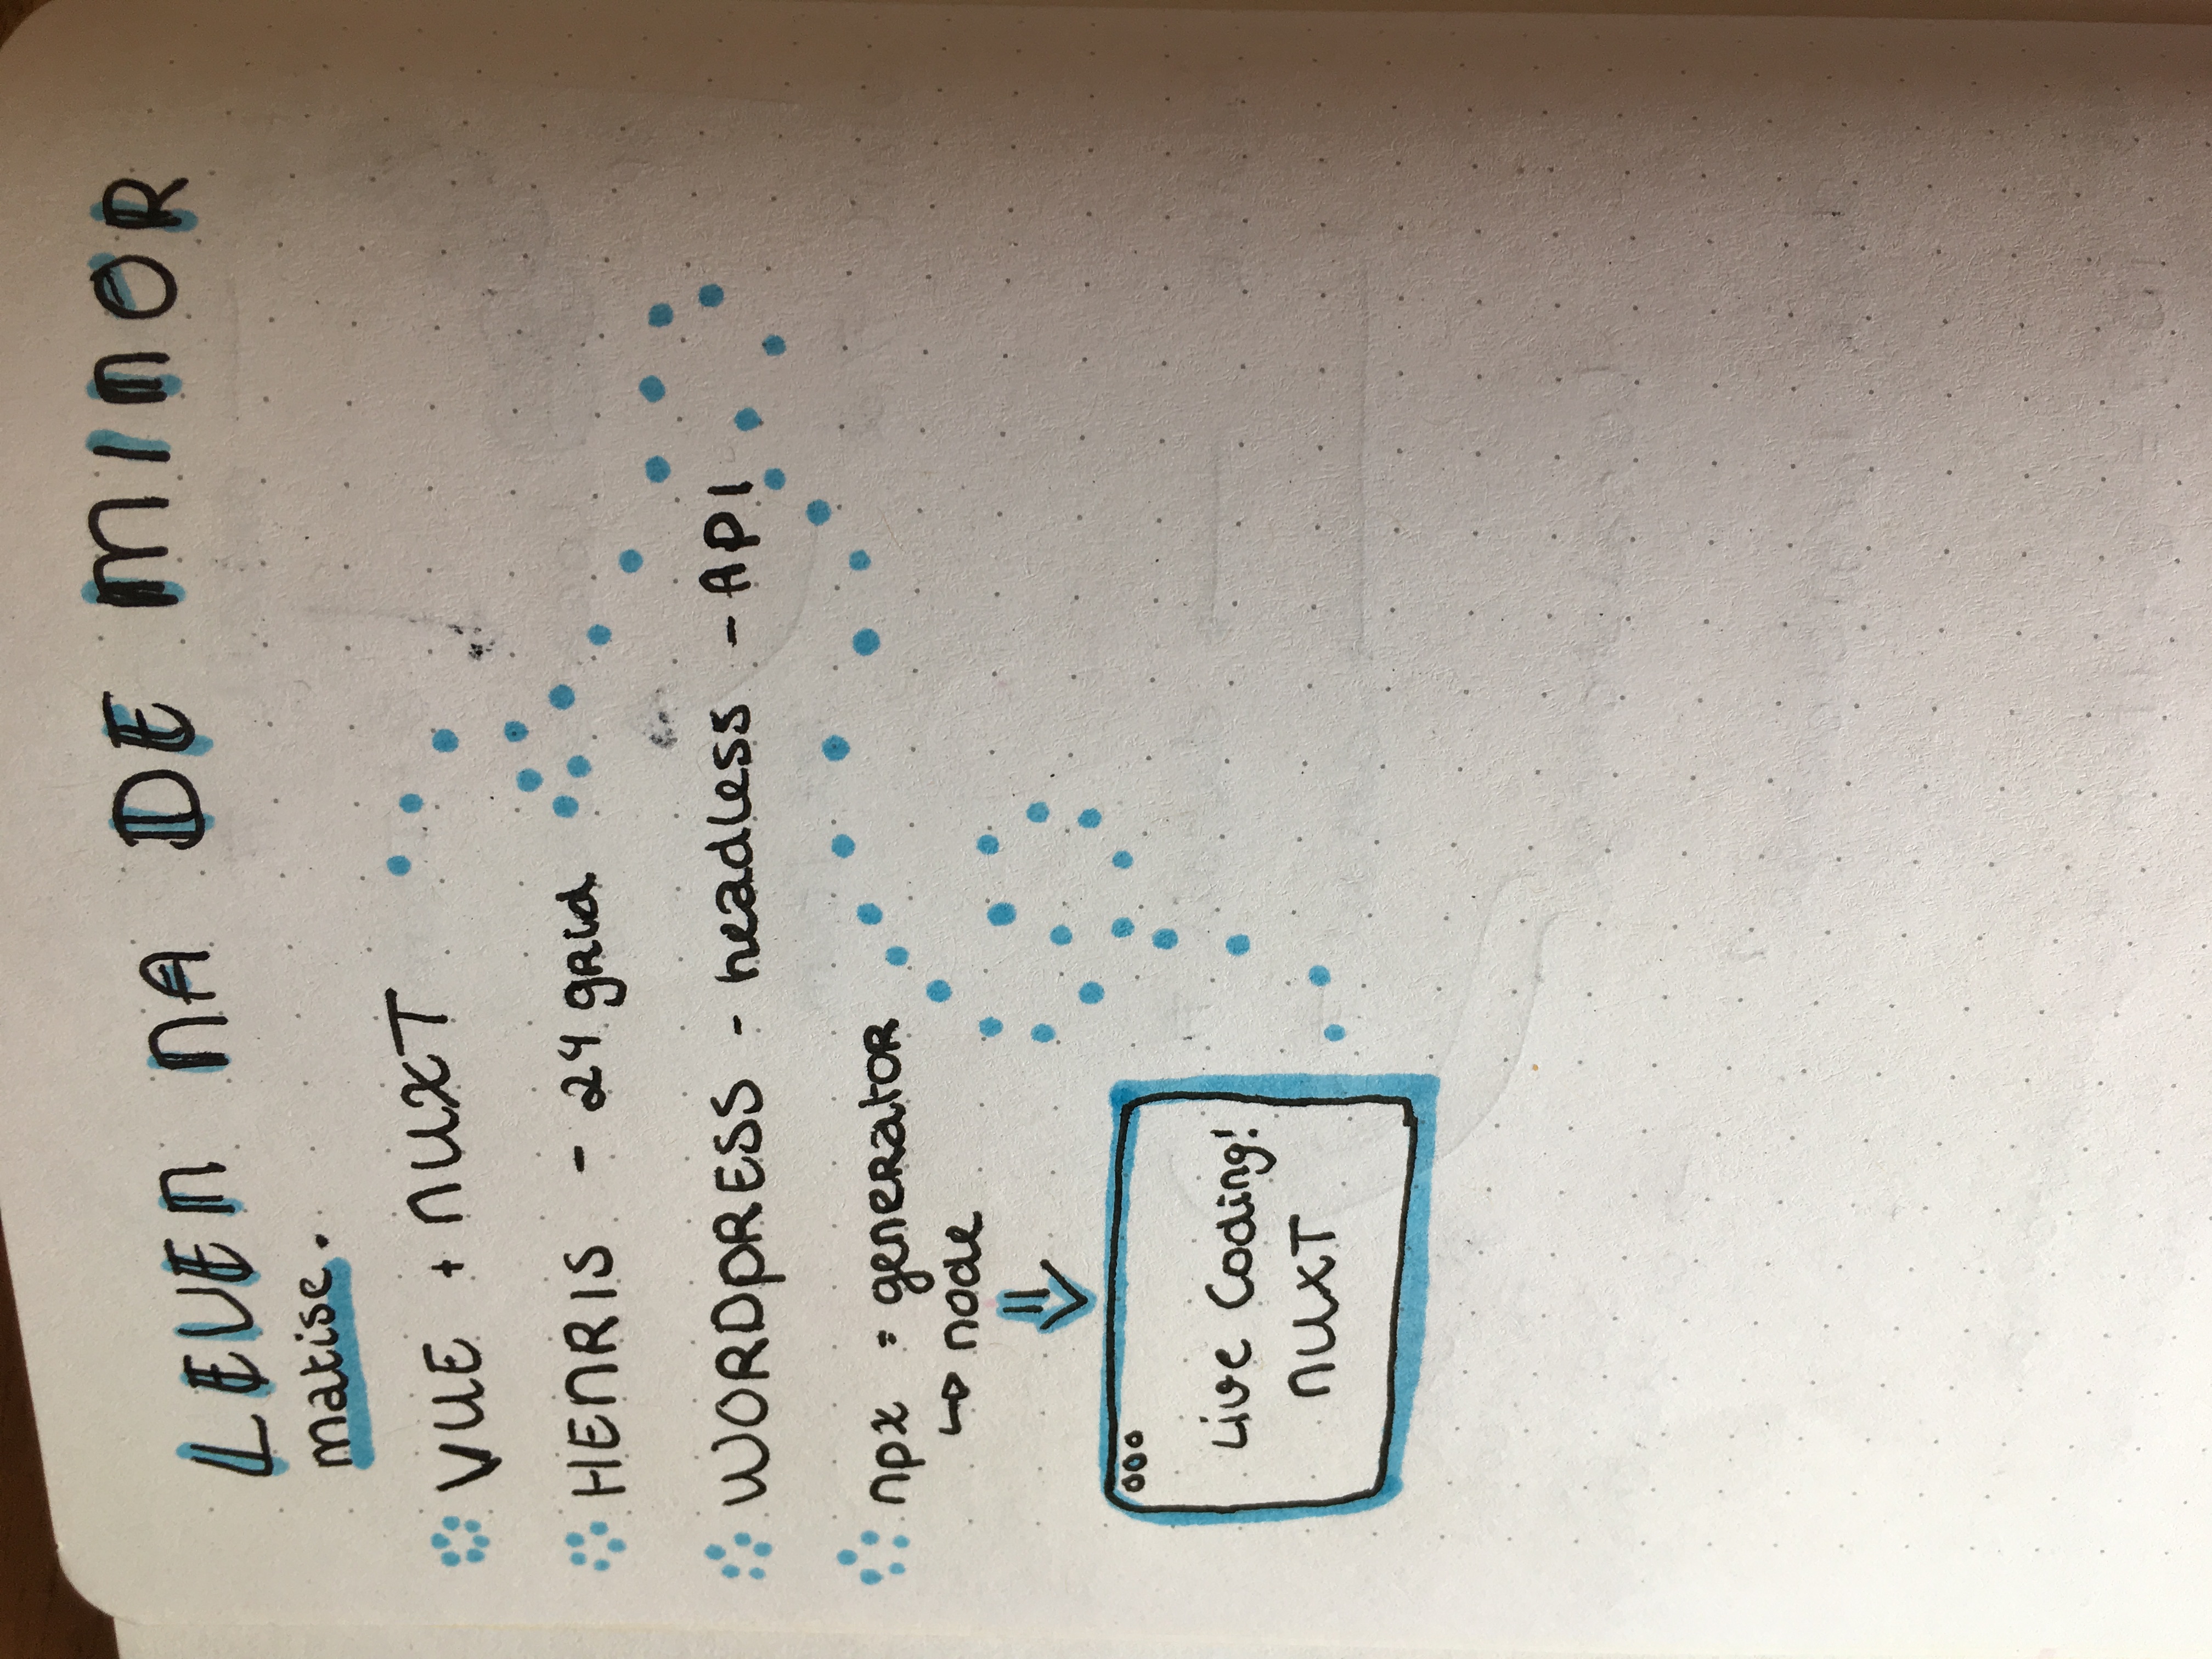 LEVEN NA DE MINOR
matise.
VUE + NUXT
HENRIS - 24 grid
WORDPRESS - headless - API
npx = generator
↳ node
Live Coding!
NUXT